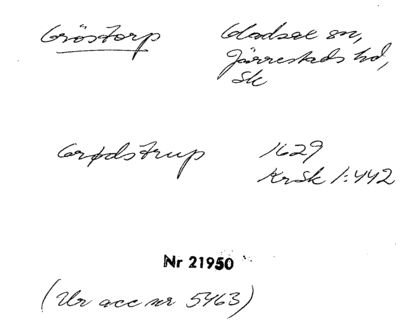 Gröstorp Gladsax sn,
Järrestads hd,
Sk
Grødstrup 1629
KrSk 1:442
Nr 21950
(Ur acc nr 5463)